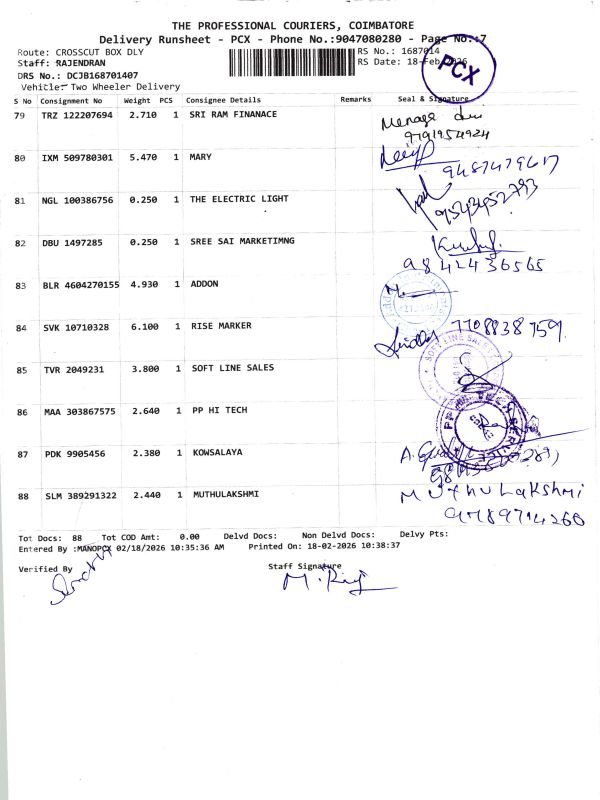 THE PROFESSIONAL COURIERS, COIMBATORE
Delivery Runsheet - PCX - Phone No.:9047080280 - Page No.:7
Route: CROSSCUT BOX DLY
RS No.: 1687014
Staff: RAJENDRAN
RS Date: 18-Feb-2026
PCX
DRS No.: DCJB168701407
Vehicle: Two Wheeler Delivery
S No Consignment No Weight PCS Consignee Details Remarks Seal & Signature
79 TRZ 122207694 2.710 1 SRI RAM FINANACE
9791954924
80 IXM 509780301 5.470 1 MARY
9487479617
81 NGL 100386756 0.250 1 THE ELECTRIC LIGHT
82 DBU 1497285 0.250 1 SREE SAI MARKETIMNG
9842436565
83 BLR 4604270155 4.930 1 ADDON
84 SVK 10710328 6.100 1 RISE MARKER
7708838759
85 TVR 2049231 3.800 1 SOFT LINE SALES
SOFT LINE SALES
86 MAA 303867575 2.640 1 PP HI TECH
87 PDK 9905456 2.380 1 KOWSALAYA
88 SLM 389291322 2.440 1 MUTHULAKSHMI
Muthulakshmi
9789714260
Tot Docs: 88 Tot COD Amt: 0.00 Delvd Docs: Non Delvd Docs: Delvy Pts:
Entered By :MANOPCX 02/18/2026 10:35:36 AM Printed On: 18-02-2026 10:38:37
Verified By
Staff Signature